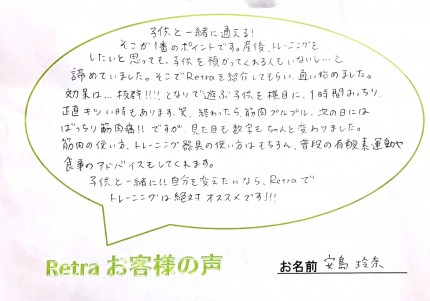 子供と一緒に通える!
そこが1番のポイントです。産後、トレーニングを
したいと思っても、子供を預かってくれる人もいないし…と
諦めていました。そこでRetraを紹介してもらい、通い始めました。
効果は…抜群!!!! となりで遊ぶ子供を横目に、1時間みっちり、
正直キツい時もあります。笑、終わったら、筋肉プルプル、次の日には
ばっちり筋肉痛!! ですが、見た目も数字もちゃんと変わりました。
筋肉の使い方、トレーニング器具の使い方はもちろん、普段の有酸素運動や
食事のアドバイスもしてくれます。
子供と一緒に!! 自分を変えたいなら、Retraで
トレーニングは絶対オススメです!!!
Retra お客様の声
お名前 安島 玲奈